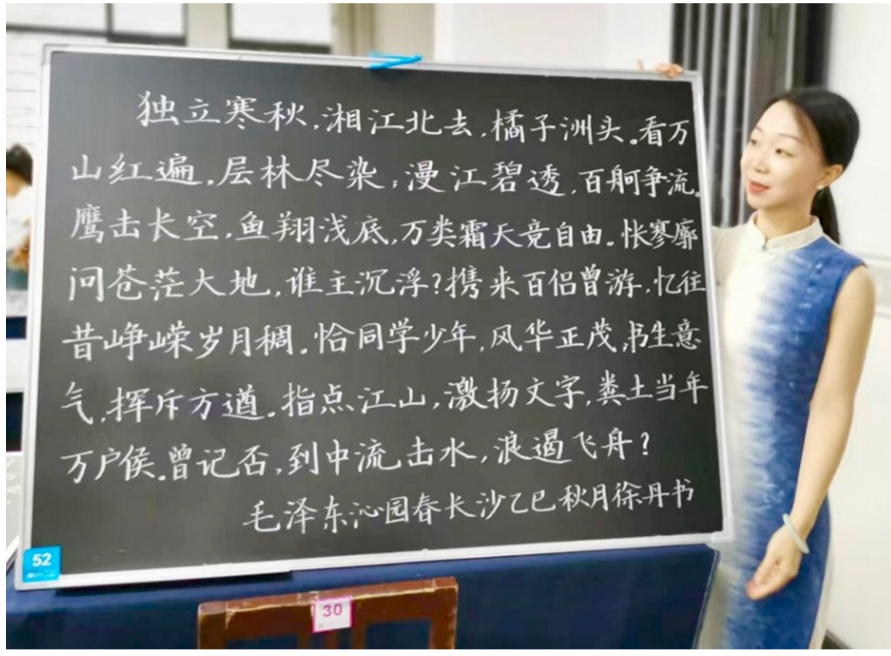 独立寒秋，湘江北去，橘子洲头。看万
山红遍，层林尽染，漫江碧透，百舸争流。
鹰击长空，鱼翔浅底，万类霜天竞自由。怅寥廓
问苍茫大地，谁主沉浮？携来百侣曾游，忆往
昔峥嵘岁月稠。恰同学少年，风华正茂，书生意
气，挥斥方遒。指点江山，激扬文字，粪土当年
万户侯。曾记否，到中流击水，浪遏飞舟？
毛泽东沁园春长沙乙巳秋月徐丹书
52
30